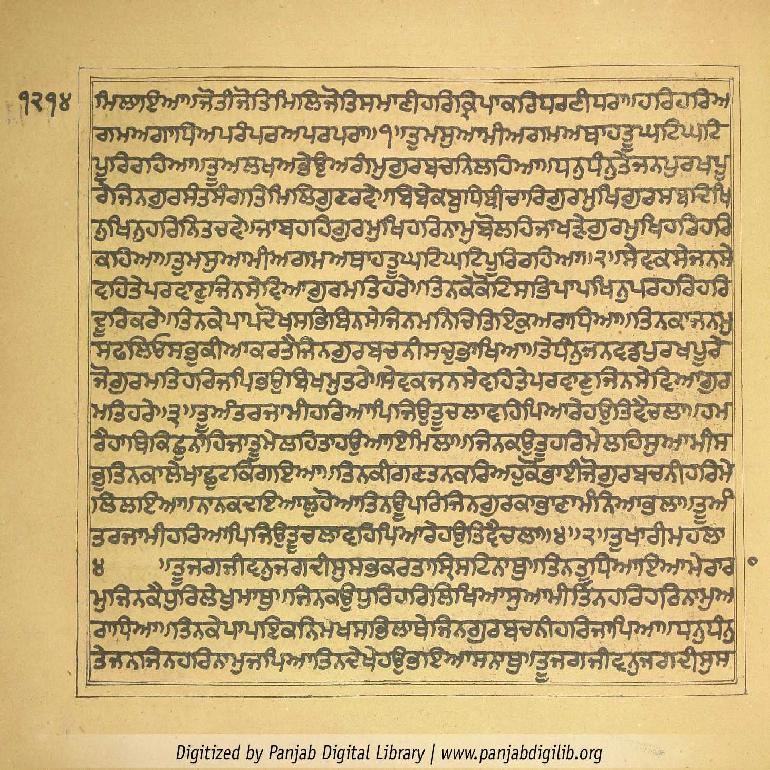 ੧੨੧੪
ਮਿਲਾਇਆ॥ਜੋਤੀਜੋਤਿਮਿਲਿਜੋਤਿਸਮਾਣੀਹਰਿਕ੍ਰਿਪਾਕਰਿਧਰਣੀਧਰਾ॥ਹਰਿਹਰਿਅ
ਗਮਅਗਾਧਿਅਪਰੰਪਰਅਪਰਪਰਾ॥੧॥ਤੁਮਸੁਆਮੀਅਗਮਅਥਾਹਤੂਘਟਿਘਟਿ
ਪੂਰਿਰਹਿਆ॥ਤੂਅਲਖਅਭੇਉਅਗੰਮੁਗੁਰਬਚਨਿਲਹਿਆ॥ਧਨੁਧੰਨੁਤੇਜਨਪੁਰਖਪੂ
ਰੇਜਿਨਗੁਰਸੰਤਸੰਗਤਿਮਿਲਿਗੁਣਰਵੇ॥ਬਿਬੇਕਬੁਧਿਬੀਚਾਰਿਗੁਰਮੁਖਿਗੁਰਸਬਦਿਖਿ
ਨੁਖਿਨੁਹਰਿਨਿਤਚਵੇ॥ਜਾਬਹਹਿਗੁਰਮੁਖਿਹਰਿਨਾਮੁਬੋਲਹਿਜਾਖੜੇਗੁਰਮੁਖਿਹਰਿਹਰਿ
ਕਹਿਆ॥ਤੁਮਸੁਆਮੀਅਗਮਅਥਾਹਤੂਘਟਿਘਟਿਪੂਰਿਰਹਿਆ॥੨॥ਸੇਵਕਸੇਜਨਸੇ
ਵਹਿਤੇਪਰਵਾਣੁਜਿਨਸੇਵਿਆਗੁਰਮਤਿਹਰੇ॥ਤਿਨਕੇਕੋਟਿਸਭਿਪਾਪਖਿਨੁਪਰਹਰਿਹਰਿ
ਦੂਰਿਕਰੇ॥ਤਿਨਕੇਪਾਪਦੋਖਸਭਿਬਿਨਸੇਜਿਨਮਨਿਚਿਤਿਇਕੁਅਰਾਧਿਆ॥ਤਿਨਕਾਜਨਮੁ
ਸਫਲਿਓਸਭੁਕੀਆਕਰਤੈਜਿਨਗੁਰਬਚਨੀਸਚੁਭਾਖਿਆ॥ਤੇਧੰਨੁਜਨਵਡਪੁਰਖਪੂਰੇ
ਜੋਗੁਰਮਤਿਹਰਿਜਪਿਭਉਬਿਖਮੁਤਰੇ॥ਸੇਵਕਜਨਸੇਵਹਿਤੇਪਰਵਾਣੁਜਿਨਸੇਵਿਆਗੁਰ
ਮਤਿਹਰੇ॥੩॥ਤੂਅੰਤਰਜਾਮੀਹਰਿਆਪਿਜਿਉਤੂਚਲਾਵਹਿਪਿਆਰੇਹਉਤਿਵੈਚਲਾ॥ਹਮ
ਰੈਹਾਥਿਕਿਛੁਨਾਹਿਜਾਤੂਮੇਲਹਿਤਾਹਉਆਇਮਿਲਾ॥ਜਿਨਕਉਤੂਹਰਿਮੇਲਹਿਸੁਆਮੀਸ
ਭੁਤਿਨਕਾਲੇਖਾਛੁਟਕਿਗਇਆ॥ਤਿਨਕੀਗਣਤਨਕਰਿਅਹੁਕੋਭਾਈਜੋਗੁਰਬਚਨੀਹਰਿਮੇ
ਲਿਲਇਆ॥ਨਾਨਕਦਇਆਲੁਹੋਆਤਿਨਊਪਰਿਜਿਨਗੁਰਕਾਭਾਣਾਮੰਨਿਆਭਲਾ॥ਤੂਅੰ
ਤਰਜਾਮੀਹਰਿਆਪਿਜਿਉਤੂਚਲਾਵਹਿਪਿਆਰੇਹਉਤਿਵੈਚਲਾ॥੪॥੨॥ਤੁਖਾਰੀਮਹਲਾ
੪ ॥ਤੂਜਗਜੀਵਨੁਜਗਦੀਸੁਸਭਕਰਤਾਸ੍ਰਿਸਟਿਨਾਥੁ॥ਤਿਨਤੂਧਿਆਇਆਮੇਰਾਰਾ
ਮੁਜਿਨਕੈਧੁਰਿਲੇਖੁਮਾਥੁ॥ਜਿਨਕਉਧੁਰਿਹਰਿਲਿਖਿਆਸੁਆਮੀਤਿਨਹਰਿਹਰਿਨਾਮੁਅ
ਰਾਧਿਆ॥ਤਿਨਕੇਪਾਪਇਕਨਿਮਖਸਭਿਲਾਥੇਜਿਨਗੁਰਬਚਨੀਹਰਿਜਾਪਿਆ॥ਧਨੁਧੰਨੁ
ਤੇਜਨਜਿਨਹਰਿਨਾਮੁਜਪਿਆਤਿਨਦੇਖੇਹਉਭਇਆਸਨਾਥੁ॥ਤੂਜਗਜੀਵਨੁਜਗਦੀਸੁਸ
Digitized by Panjab Digital Library | www.panjabdigilib.org